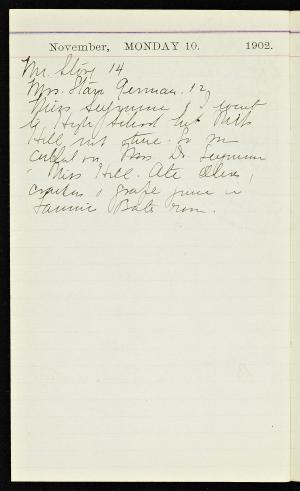 November, MONDAY 10. 1902.
Mr. Story 14
Mrs. German. 12
Miss Seymour & I went
to High School but Miss
Hill not there. So we
called on Mrs. Dr. Seymour
& Miss Hill. Ate Olives,
crackers & grape juice in
Fannie Bates room.